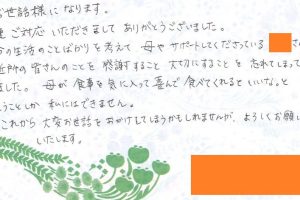 お世話様になります。
ご対応いただきまして ありがとうございました。
の生活のことばかりを考えて 母やサポートしてくださっている さ
近所の皆さんのことを 感謝すること 大切にすることを 忘れてしまって
ました。 母が食事を気に入って喜んで食べてくれるといいな。と
うことしか 私にはできません。
これから 大変お世話をおかけしてしまうかもしれませんが、よろしくお願い
いたします。